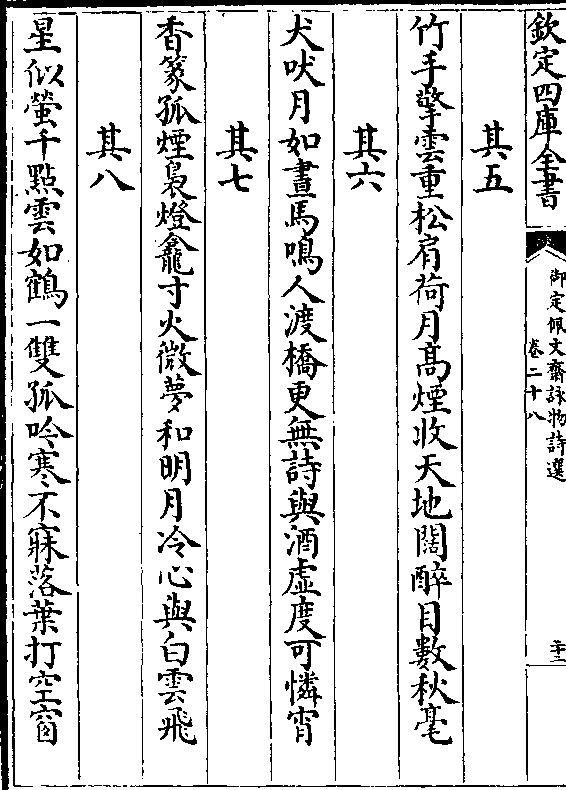 欽定四庫全書
御定佩文齋詠物詩選
卷二十八
二十二
其五
竹手擎雲重松肩荷月高煙收天地闊醉目數秋毫
其六
犬吠月如晝馬鳴人渡橋更無詩與酒虛度可憐宵
其七
香篆孤煙裊燈龕寸火微夢和明月冷心與白雲飛
其八
星似螢千點雲如鶴一雙孤吟寒不寐落葉打空窗